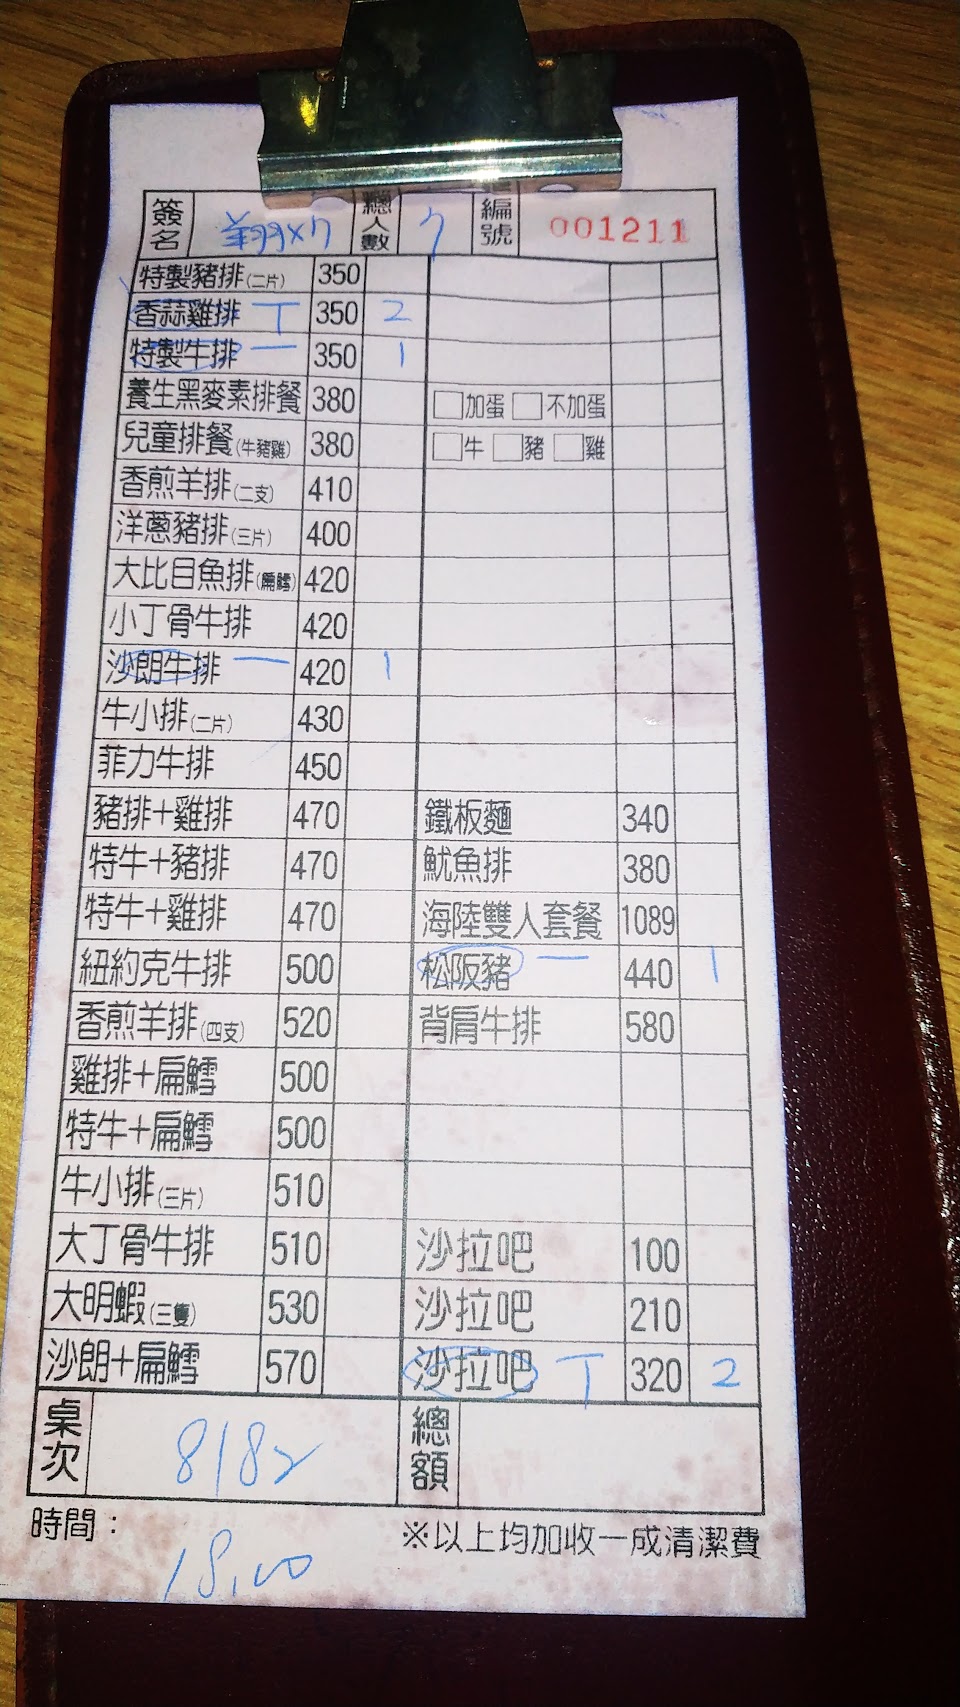 簽名 總人數 7 編號 001211
特製豬排(二片) 350
香蒜雞排 丅 350 2
特製牛排 一 350 1
養生黑麥素排餐 380 □加蛋 □不加蛋
兒童排餐(牛豬雞) 380 □牛 □豬 □雞
香煎羊排(二支) 410
洋蔥豬排(三片) 400
大比目魚排(扁鱈) 420
小丁骨牛排 420
沙朗牛排 一 420 1
牛小排(二片) 430
菲力牛排 450
豬排+雞排 470 鐵板麵 340
特牛+豬排 470 魷魚排 380
特牛+雞排 470 海陸雙人套餐 1089
紐約克牛排 500 松阪豬 一 440 1
香煎羊排(四支) 520 背肩牛排 580
雞排+扁鱈 500
特牛+扁鱈 500
牛小排(三片) 510
大丁骨牛排 510 沙拉吧 100
大明蝦(三隻) 530 沙拉吧 210
沙朗+扁鱈 570 沙拉吧 丅 320 2
桌次 8182 總額
時間： 18:00 ※以上均加收一成清潔費